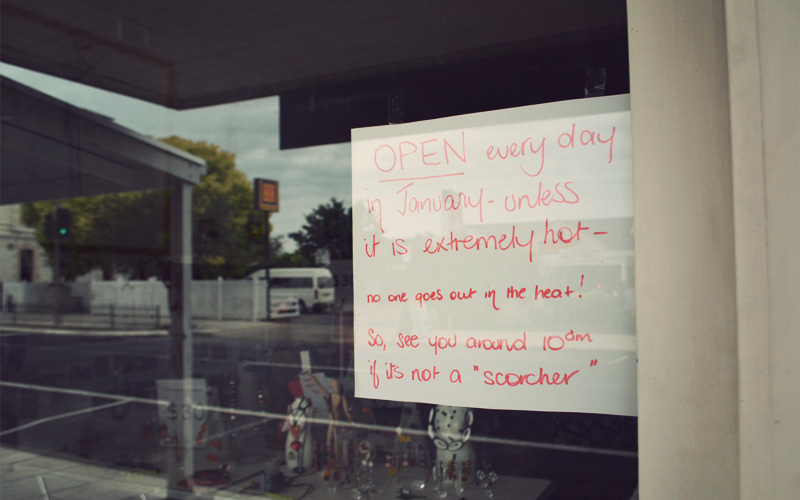 OPEN every day
in January - unless
it is extremely hot -
no one goes out in the heat!
So, see you around 10am
if it's not a "scorcher"
$30